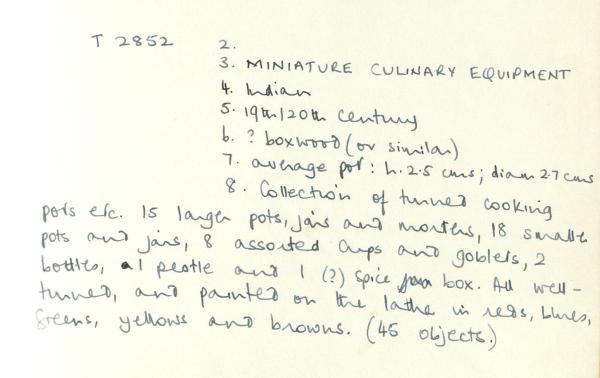 T 2852 2.
3. MINIATURE CULINARY EQUIPMENT
4. Indian
5. 19th/20th century
6. ? boxwood (or similar)
7. average pot: h. 2.5 cms; diam 2.7 cms
8. Collection of turned cooking
pots etc. 15 larger pots, jars and mortars, 18 smaller
pots and jars, 8 assorted cups and goblets, 2
bottles, 1 pestle and 1 (?) spice box. All well-
turned, and painted on the lathe in reds, blues,
greens, yellows and browns. (45 objects.)